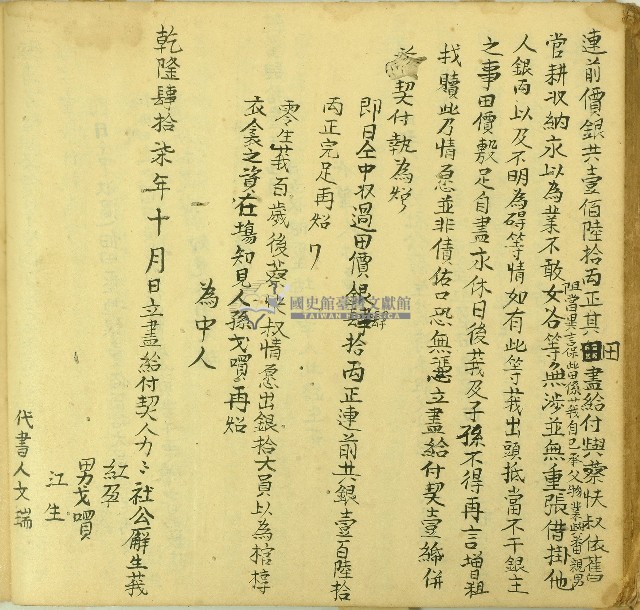 連前價銀共壹佰陸拾両正其田盡給付與蔡快叔依舊
田
管耕收納永以為業不敢女各等
阻當異言保此田係莪自己承父物業與番親男
無涉並無重張借掛他
人銀両以及不明為碍等情如有此等莪出頭抵當不干銀主
之事田價敷足自盡永休日後莪及子孫不得再言增租
找贖此乃情愿並非債佑口恐無憑立盡給付契壹紙併
契付執為炤
即日仝中收過田價銀肆拾両正連前共銀壹百陸拾
両正完足再炤
零生莪百歲後蔡快叔情愿出銀拾大員以為棺槨
衣衾之資在塲知見人孫戈嘪再炤
一
為中人
乾隆肆拾柒年十月日立盡給付契人力々社公廨生莪
紅孕
男戈嘪
江生
代書人文瑞
國史館臺灣文獻館
TAIWAN HISTORICA